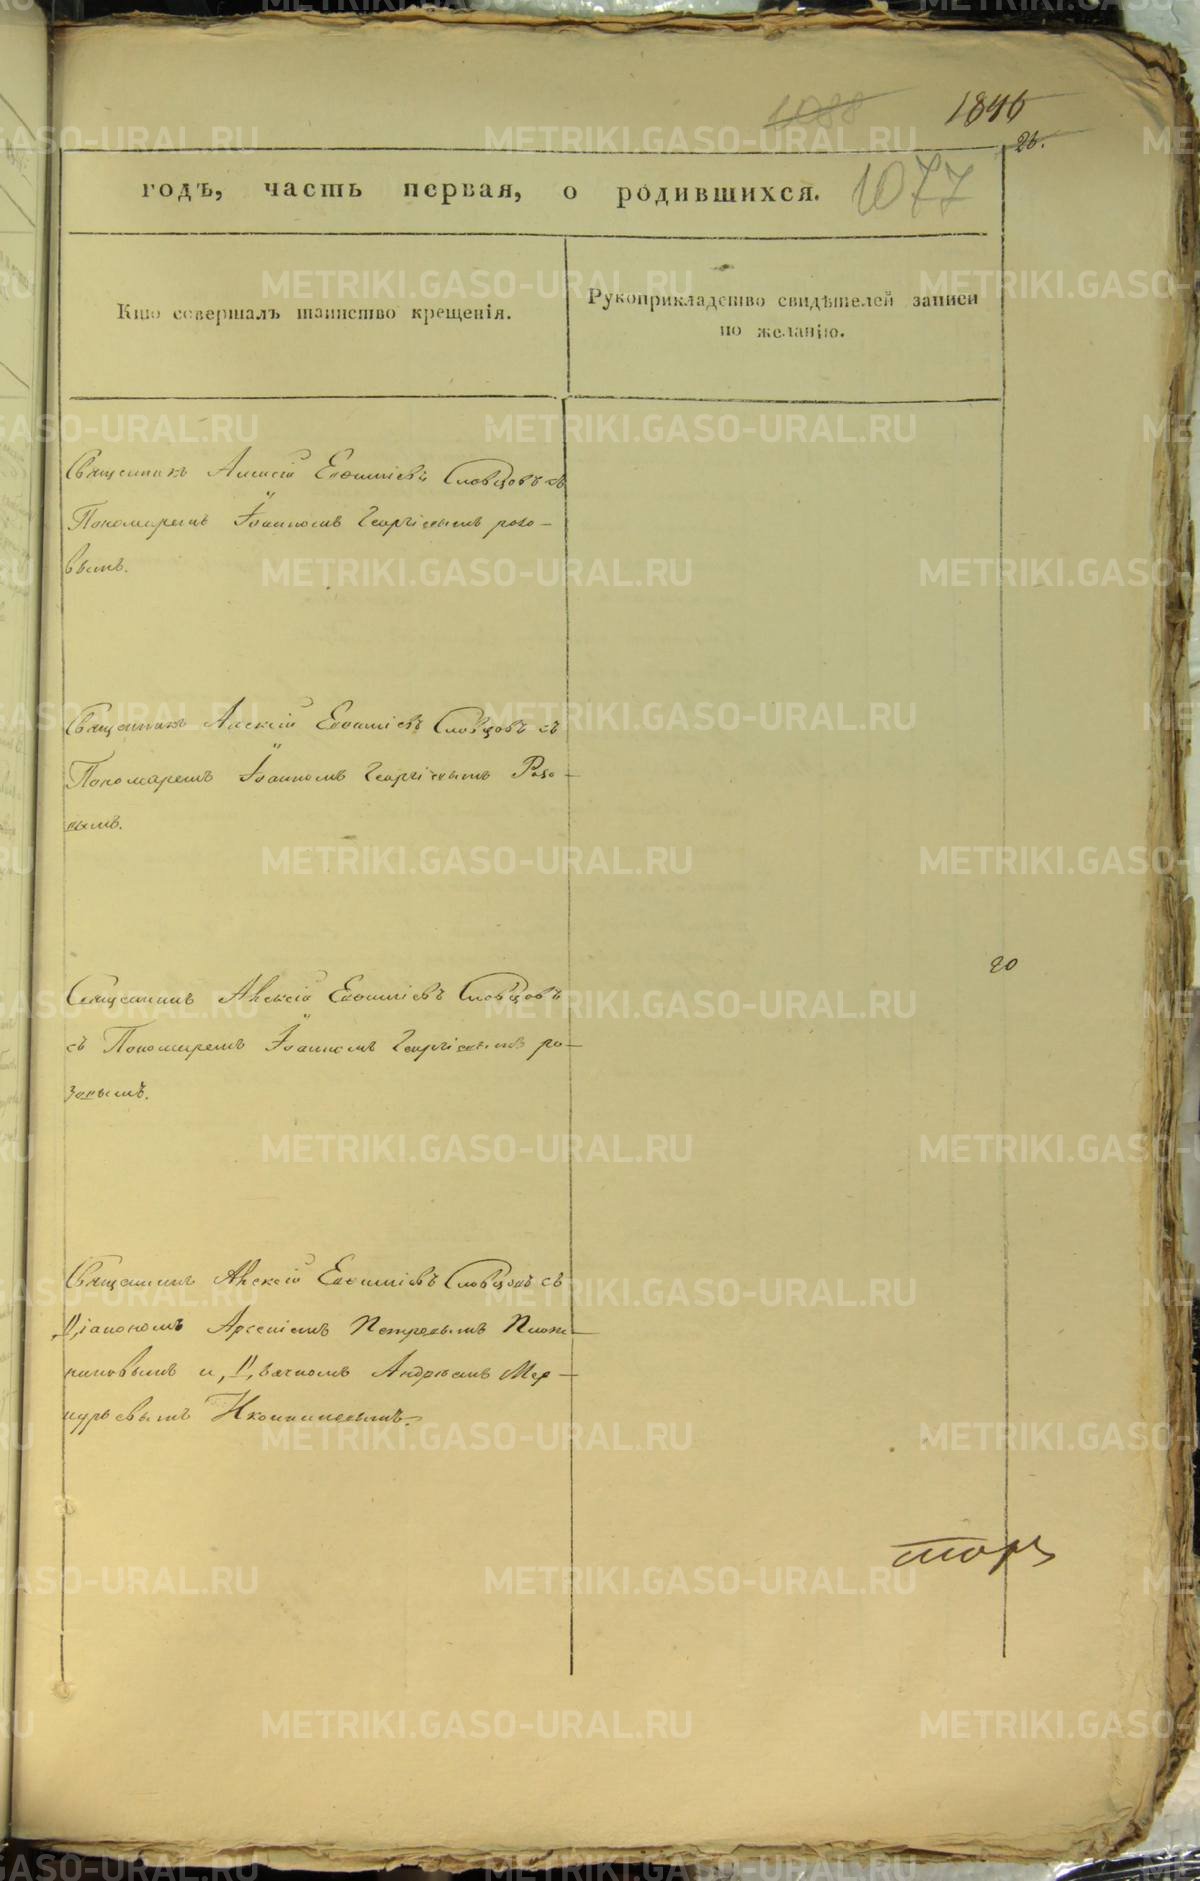 1088 1846
26.
годъ, часть первая, о родившихся. 1077
Кто совершалъ таинство крещенія.
Рукоприкладство свидѣтелей записи
по желанію.
Священникъ Алексій Евѳиміевъ Словцовъ съ
Пономаремъ Іоанномъ Георгіевымъ розо-
вымъ.
Священникъ Алексій Евѳиміевъ Словцовъ съ
Пономаремъ Іоанномъ Георгіевымъ Розо-
вымъ.
20
Священникъ Алексій Евѳиміевъ Словцовъ
съ Пономаремъ Іоанномъ Георгіевымъ ро-
зовымъ.
Священникъ Алексій Евѳиміевъ Словцовъ съ
Діакономъ Арсеніемъ Петровымъ
и Дьячкомъ Андреемъ Мер-
курьевымъ
METRIKI.GASO-URAL.RU